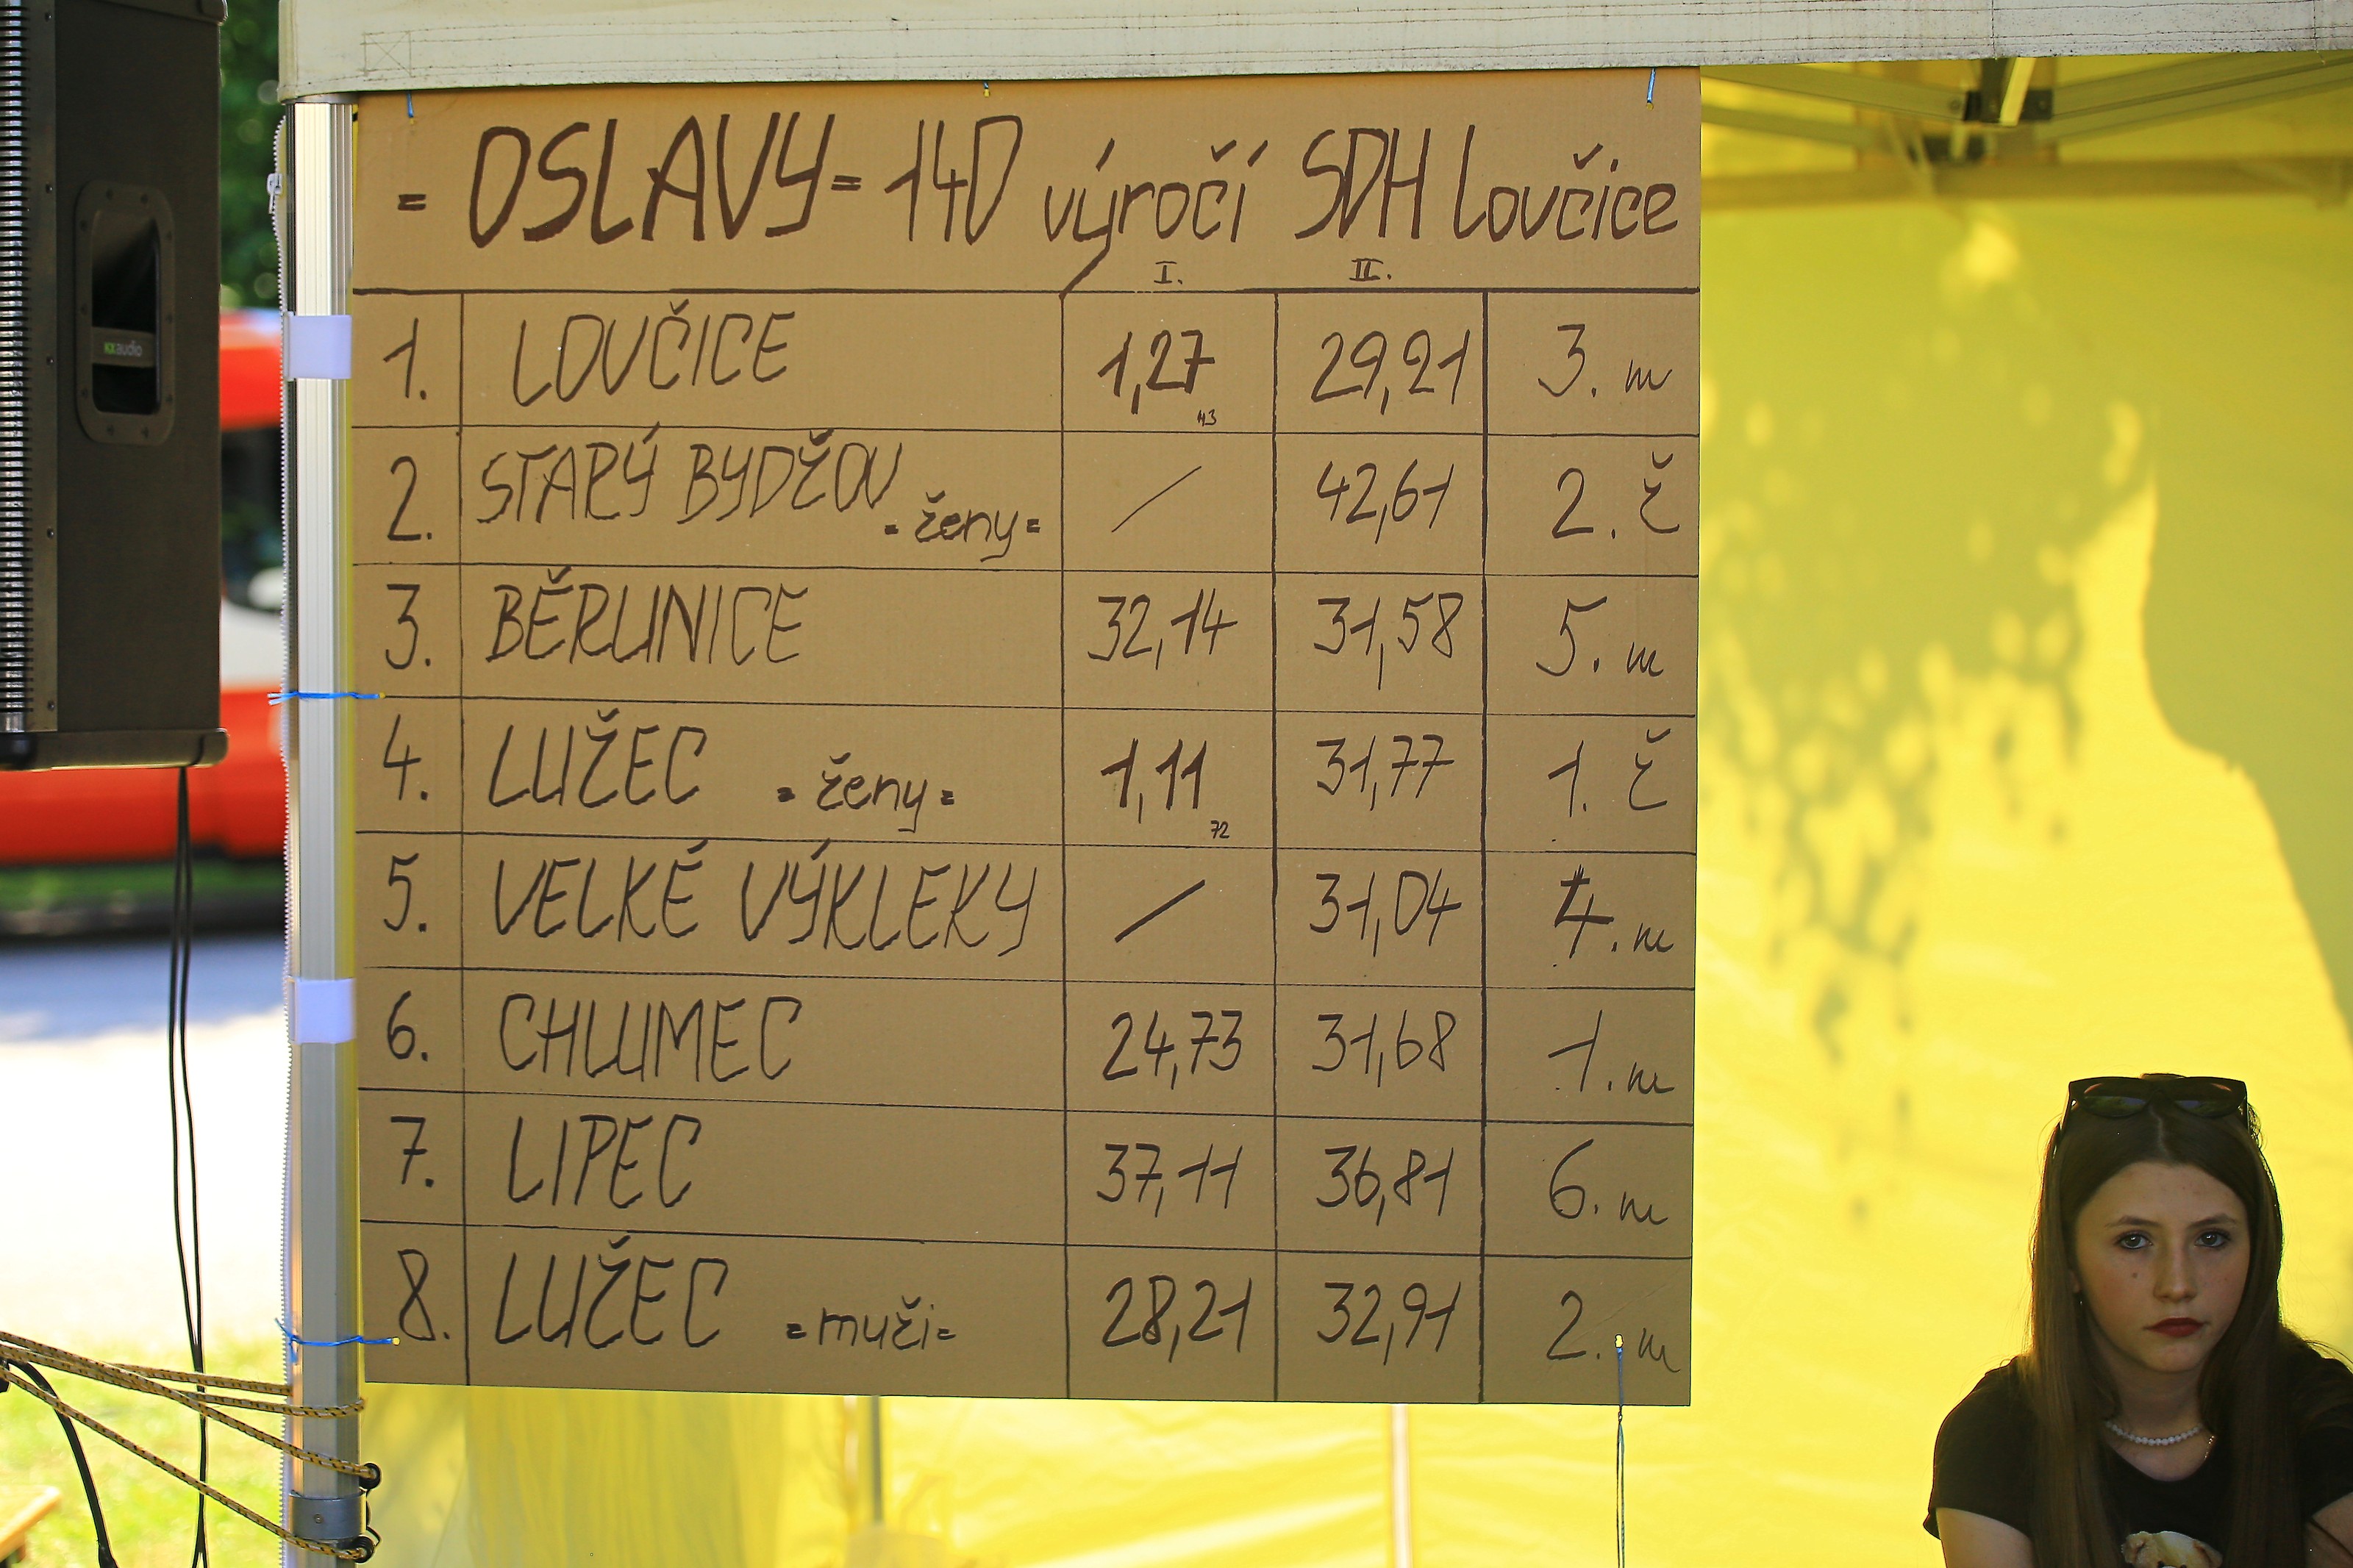 = OSLAVY = 140 výročí SDH Lovčice
I. II.
1. LOVČICE 1,27 43 29,21 3. m
2. STARÝ BYDŽOV = ženy = / 42,61 2. ž
3. BĚRUNICE 32,14 31,58 5. m
4. LUŽEC = ženy = 1,11 72 31,77 1. ž
5. VELKÉ VÝKLEKY / 31,04 4. m
6. CHLUMEC 24,73 31,68 1. m
7. LIPEC 37,11 36,81 6. m
8. LUŽEC = muži = 28,21 32,91 2. m
audio